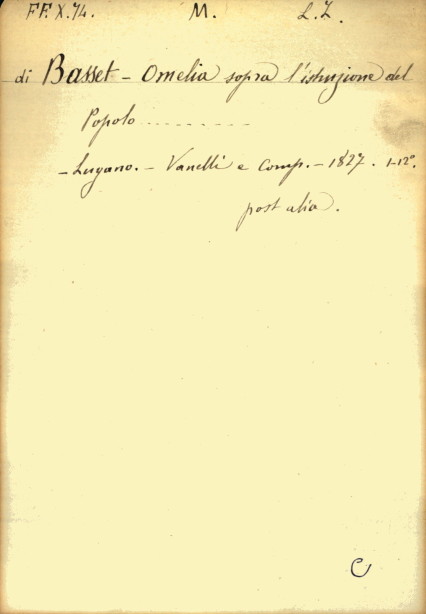 FF. X. 74. M. L. Z.
di Basset – Omelia sopra l'istruzione del
Popolo ..........
– Lugano. – Vanelli e Comp. – 1827. 1–12°.
post alia.
C